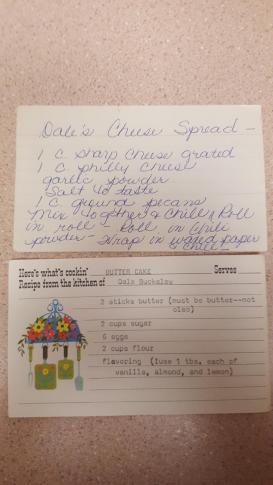 Dale's Cheese Spread -
1 C. sharp cheese grated
1 C philly cheese
garlic powder
Salt to taste
1 C. ground pecans
Mix together & chill & Roll
in roll - Roll in chili
powder - Wrap in waxed paper
& chill -
Here's what's cookin' BUTTER CAKE Serves
Recipe from the kitchen of Dale Buckalew
2 sticks butter (must be butter--not
oleo)
2 cups sugar
6 eggs
2 cups flour
flavoring (Iuse 1 tbs. each of
vanilla, almond, and lemon)